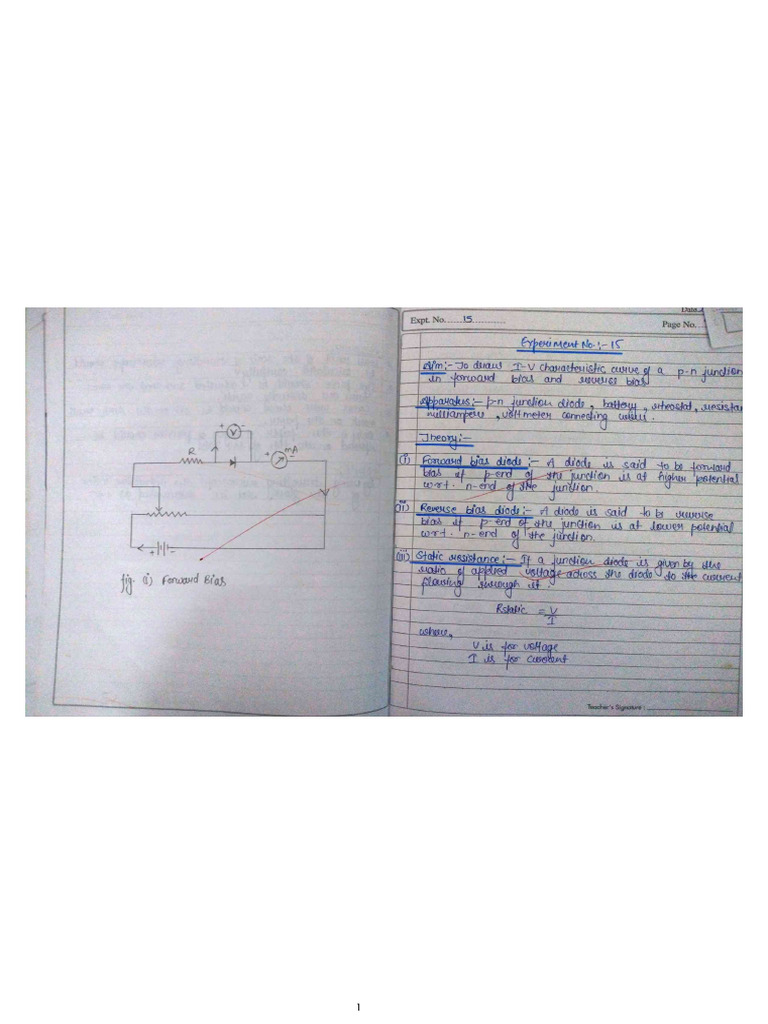 R
+ V -
+
mA
+ -
fig. (i) Forward Bias
Date
Expt. No. 15
Page No.
Experiment No.:- 15
Aim:- To draw I-V characteristic curve of a p-n junction
in forward bias and reverse bias
Apparatus:- p-n junction diode, battery, rheostat, resistan
milliampere, voltmeter connecting wires.
Theory:-
(i) Forward bias diode:- A diode is said to be forward
bias if p-end of the junction is at higher potential
w.r.t. n-end of the junction.
(ii) Reverse bias diode:- A diode is said to be reverse
bias if p-end of the junction is at lower potential
w.r.t. n-end of the junction.
(iii) Static resistance:- If a junction diode is given by the
ratio of applied voltage across the diode to the current
flowing through it.
Rstatic = V
I
where,
V is for voltage
I is for current
Teacher's Signature :
1